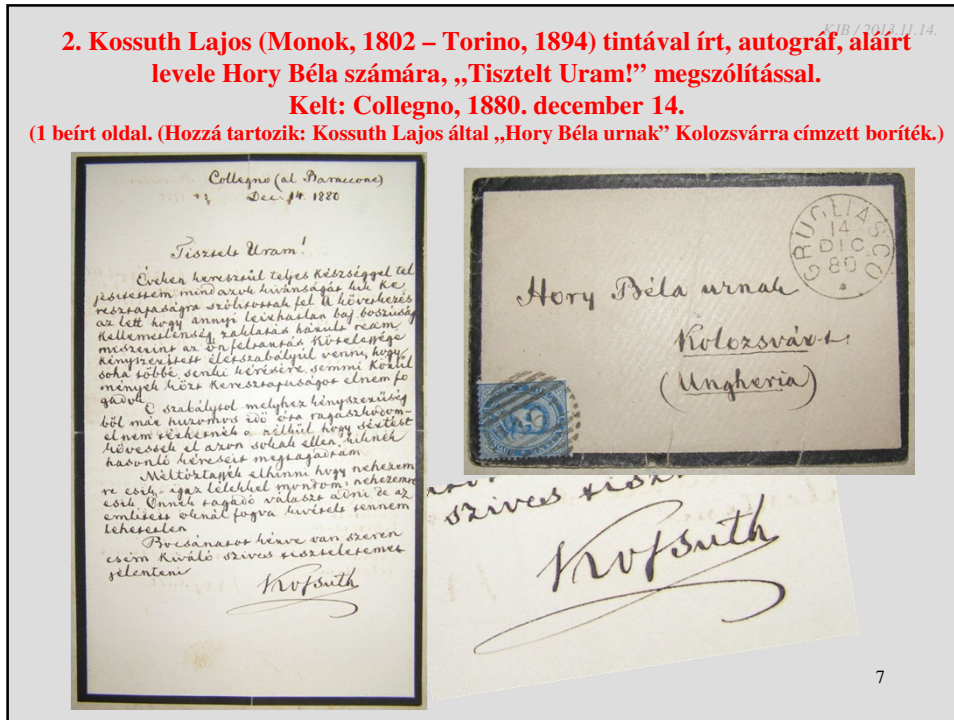 KJB / 2013.11.14.
2. Kossuth Lajos (Monok, 1802 – Torino, 1894) tintával írt, autográf, aláírt
levele Hory Béla számára, „Tisztelt Uram!” megszólítással.
Kelt: Collegno, 1880. december 14.
(1 beírt oldal. (Hozzá tartozik: Kossuth Lajos által „Hory Béla urnak” Kolozsvárra címzett boríték.)
Collegno (al Baraccone)
Dec. 14. 1880
Tisztelt Uram!
Éveken keresztül teljes készséggel tel
jesitettem mindazok kivánságát kik ke
resztapaságra szólitottak fel. A következés
az lett hogy annyi leirhatlan baj, boszuság
kellemetlenség, zaklatás hárult reám
miszerint az önfentartás kötelessége
kényszeritett életszabályúl venni, hogy
soha többé, senki kérésére, semmi körül
mények közt keresztapaságot el nem fo
gadok.
E szabálytol melyhez kényszerüség
ből már huzamos idő óta ragaszkodom
el nem térhetnék a nélkül hogy sértést
kövessek el azon sokak ellen, kiknek
hasonló kéréseit megtagadtam.
Méltóztassék elhinni hogy nehezem
re esik – igaz lélekkel mondom, nehezemre
esik Önnek tagadó választ adni de az
emlitett oknál fogva kivételt tennem
lehetetlen
Bocsánatot kérve van szeren
csém kiváló szives tiszteletemet
jelenteni
Kossuth
GRUGLIASCO
14
DIC
80
Hory Béla urnak
Kolozsvárt
(Ungheria)
szives
Kossuth
7